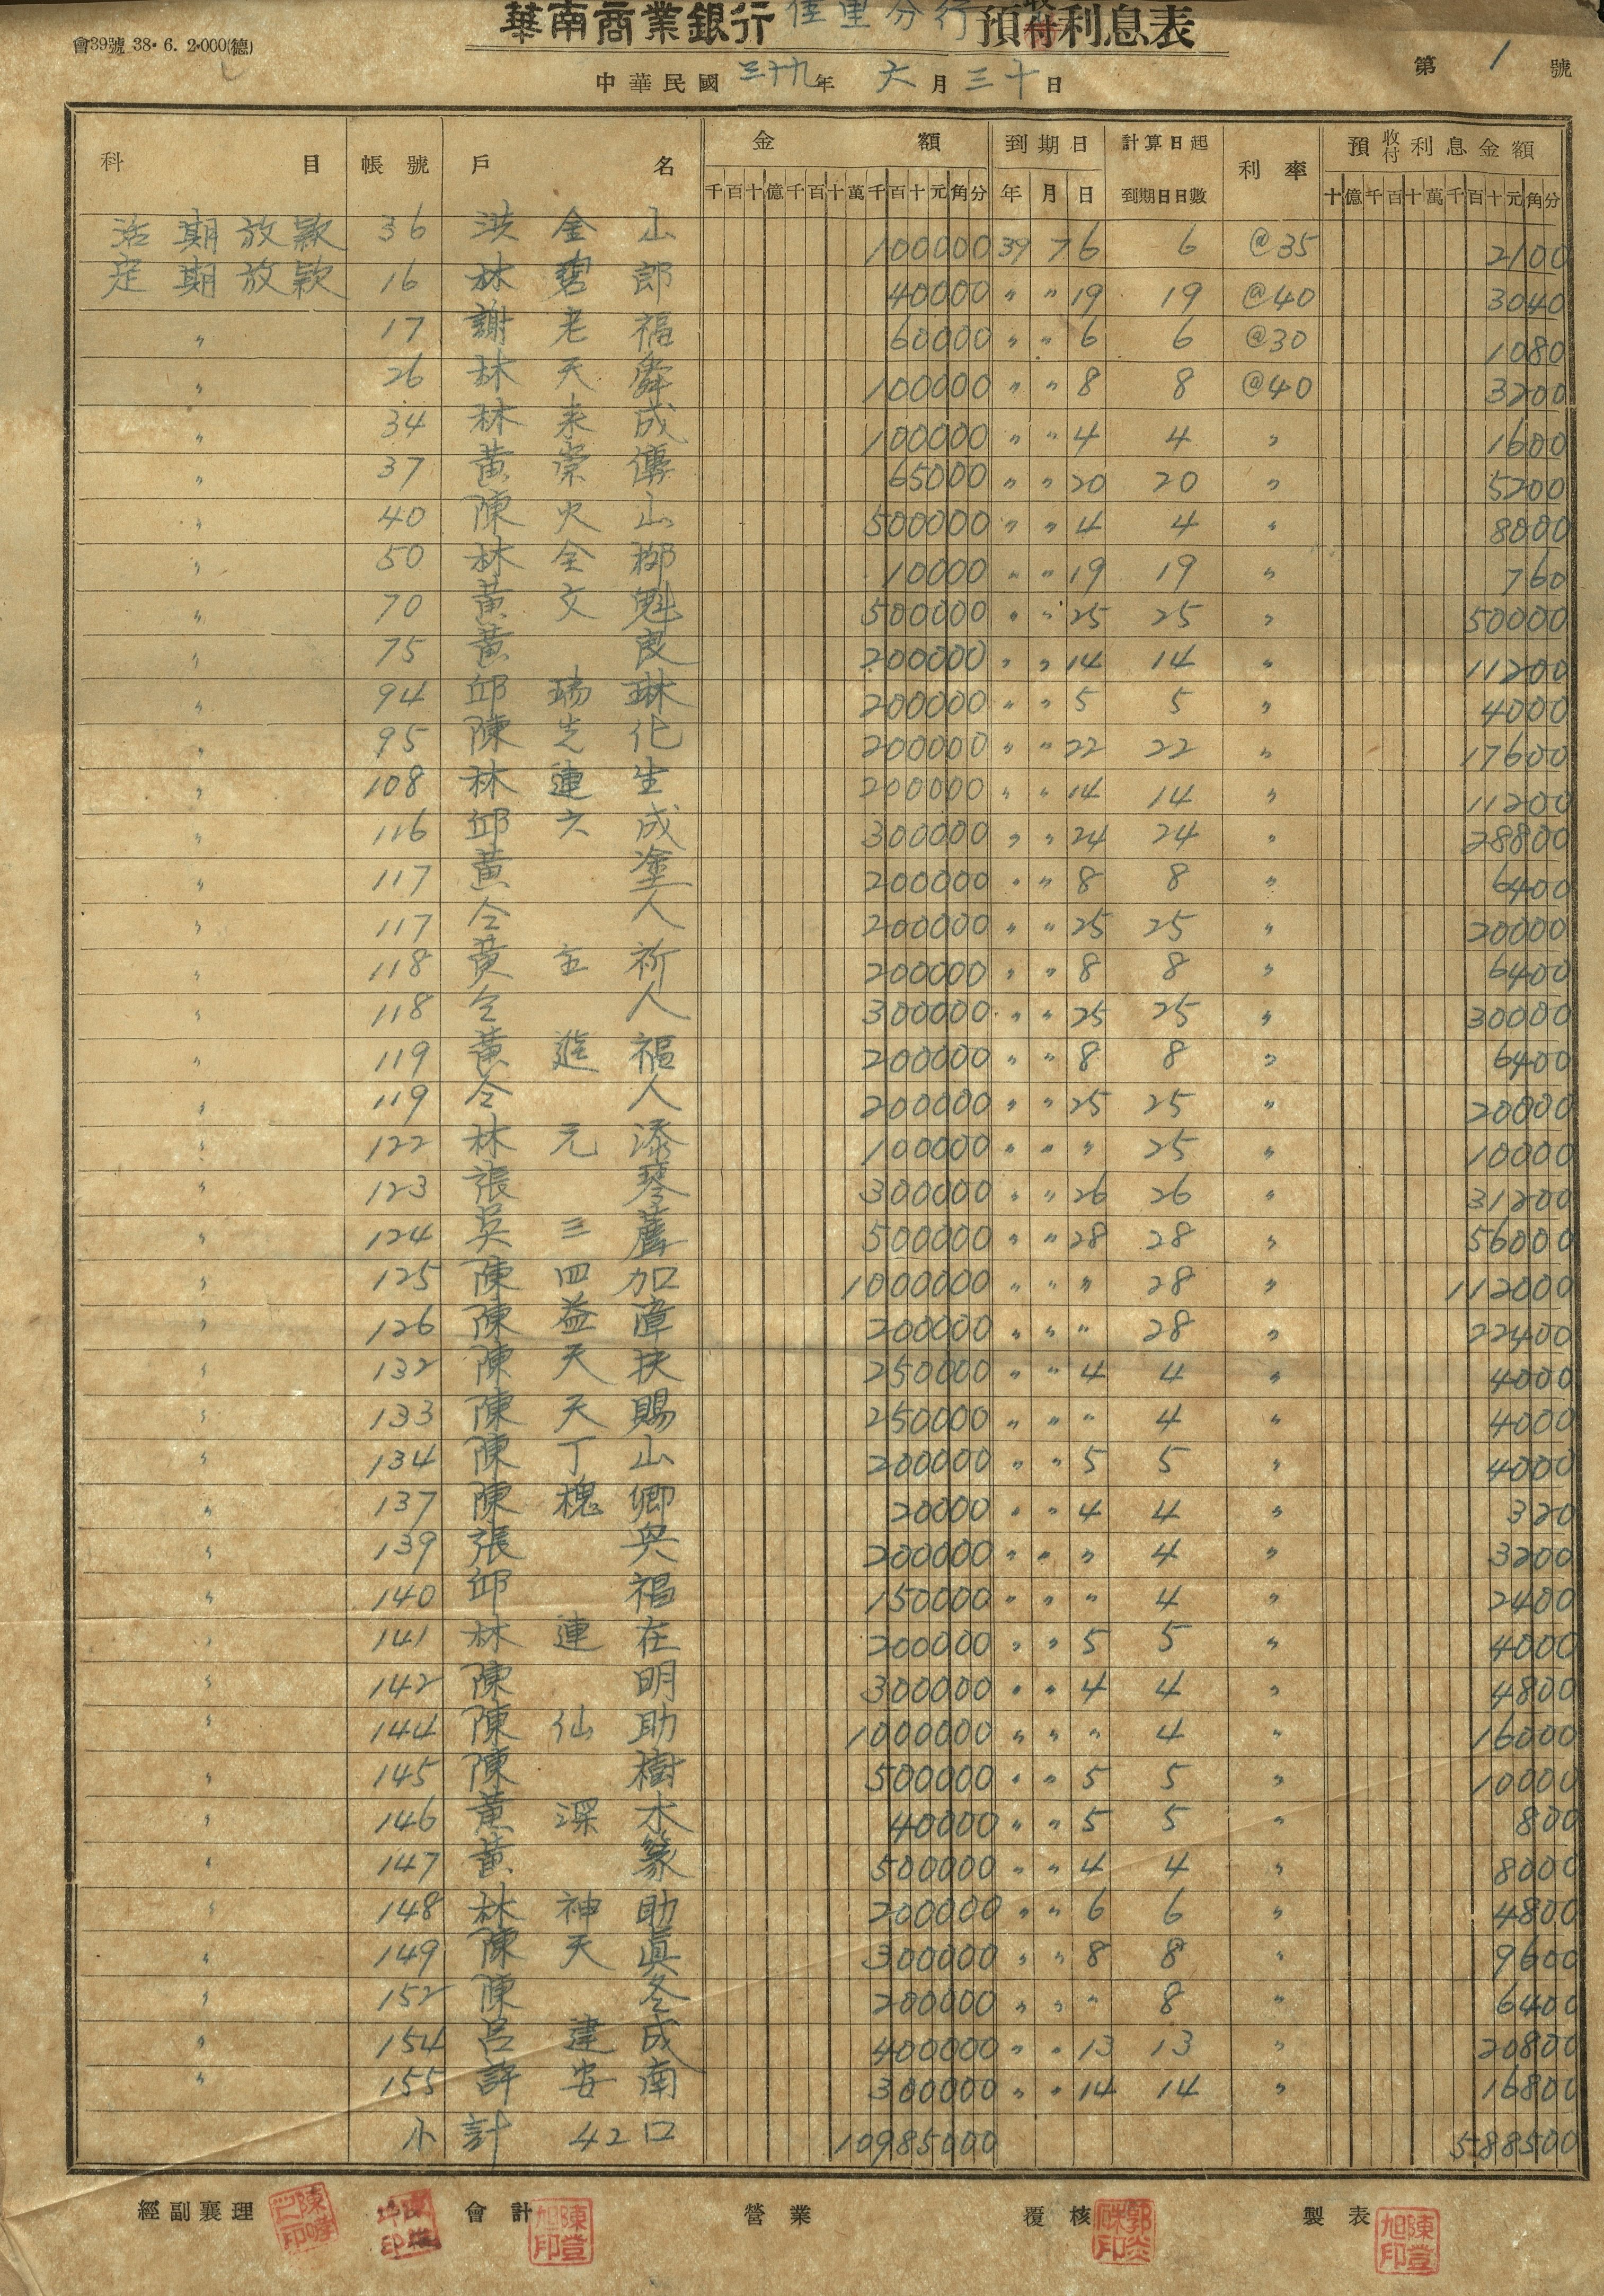 華南商業銀行 佳里分行 預收付利息表
會39號 38.6.2.000(德)
中華民國 三十九年 六月 三十日
第 1 號
科目 帳號 戶名 金額 到期日 計算日起到期日日數 利率 預收付利息金額
千百十億千百十萬千百十元角分 年 月 日 十億千百十萬千百十元角分
活期放款 36 洪金山 100000 39 7 6 6 @35 2100
定期放款 16 林碧郎 40000 〃 〃 19 19 @40 3040
〃 17 謝老福 60000 〃 〃 6 6 @30 1080
〃 26 林天舜 100000 〃 〃 8 8 @40 3200
〃 34 林来成 100000 〃 〃 4 4 〃 1600
〃 37 黃崇傳 65000 〃 〃 20 20 〃 5200
〃 40 陳火山 500000 〃 〃 4 4 〃 8000
〃 50 林全 10000 〃 〃 19 19 〃 760
〃 70 黃文魁 500000 〃 〃 25 25 〃 50000
〃 75 黃良 200000 〃 〃 14 14 〃 11200
〃 94 邱瑞琳 200000 〃 〃 5 5 〃 4000
〃 95 陳先化 200000 〃 〃 22 22 〃 17600
〃 108 林連生 200000 〃 〃 14 14 〃 11200
〃 116 邱六成 300000 〃 〃 24 24 〃 28800
〃 117 黃塗 200000 〃 〃 8 8 〃 6400
〃 117 仝人 200000 〃 〃 25 25 〃 20000
〃 118 黃主祈 200000 〃 〃 8 8 〃 6400
〃 118 仝人 300000 〃 〃 25 25 〃 30000
〃 119 黃進福 200000 〃 〃 8 8 〃 6400
〃 119 仝人 200000 〃 〃 25 25 〃 20000
〃 122 林元添 100000 〃 〃 〃 25 〃 10000
〃 123 張琴 300000 〃 〃 26 26 〃 31200
〃 124 吳三 500000 〃 〃 28 28 〃 56000
〃 125 陳四加 1000000 〃 〃 〃 28 〃 112000
〃 126 陳益漳 200000 〃 〃 〃 28 〃 22400
〃 132 陳天扶 250000 〃 〃 4 4 〃 4000
〃 133 陳天賜 250000 〃 〃 〃 4 〃 4000
〃 134 陳丁山 200000 〃 〃 5 5 〃 4000
〃 137 陳槐卿 20000 〃 〃 4 4 〃 320
〃 139 張 200000 〃 〃 〃 4 〃 3200
〃 140 邱福 150000 〃 〃 〃 4 〃 2400
〃 141 林連在 200000 〃 〃 5 5 〃 4000
〃 142 陳明 300000 〃 〃 4 4 〃 4800
〃 144 陳仙助 1000000 〃 〃 〃 4 〃 16000
〃 145 陳樹 500000 〃 〃 5 5 〃 10000
〃 146 黃深水 40000 〃 〃 5 5 〃 800
〃 147 黃篆 500000 〃 〃 4 4 〃 8000
〃 148 林神助 200000 〃 〃 6 6 〃 4800
〃 149 陳天真 300000 〃 〃 8 8 〃 9600
〃 152 陳冬 200000 〃 〃 〃 8 〃 6400
〃 154 呂建成 400000 〃 〃 13 13 〃 20800
〃 155 許安南 300000 〃 〃 14 14 〃 16800
小計 42口 10985000 588500
經副襄理 會計 陳登旭印 營業 覆核 製表 陳登旭印